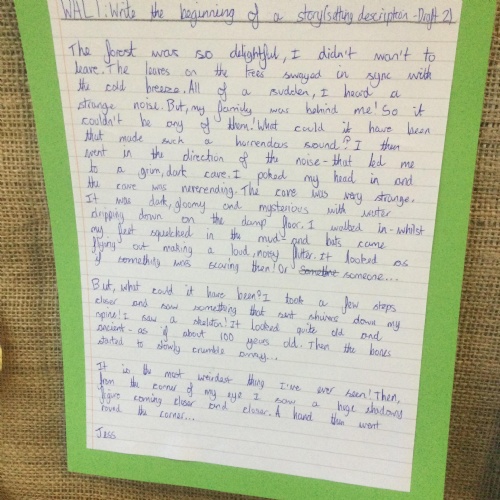 WALT: Write the beginning of a story (setting description - Draft 2)
The forest was so delightful, I didn't wan't to
leave. The leaves on the trees swayed in sync with
the cold breeze. All of a sudden, I heard a
strange noise. But, my family was behind me! So it
couldn't be any of them! What could it have been
that made such a horrendous sound? I then
went in the direction of the noise - that led me
to a grim, dark cave. I poked my head in and
the cave was neverending. The cave was very strange.
It was dark, gloomy and mysterious with water
dripping down on the damp floor. I walked in - whilst
my feet squelched in the mud - and bats came
flying out making a loud, noisy flutter. It looked as
if something was scaring them! Or someone...
But, what could it have been? I took a few steps
closer and saw something that sent shivers down my
spine! I saw a skeleton! It looked quite old and
ancient - as if about 100 years old. Then the bones
started to slowly crumble away...
It is the most weirdest thing I've ever seen! Then,
from the corner of my eye I saw a huge shadowy
figure coming closer and closer. A hand then went
round the corner...
Jess